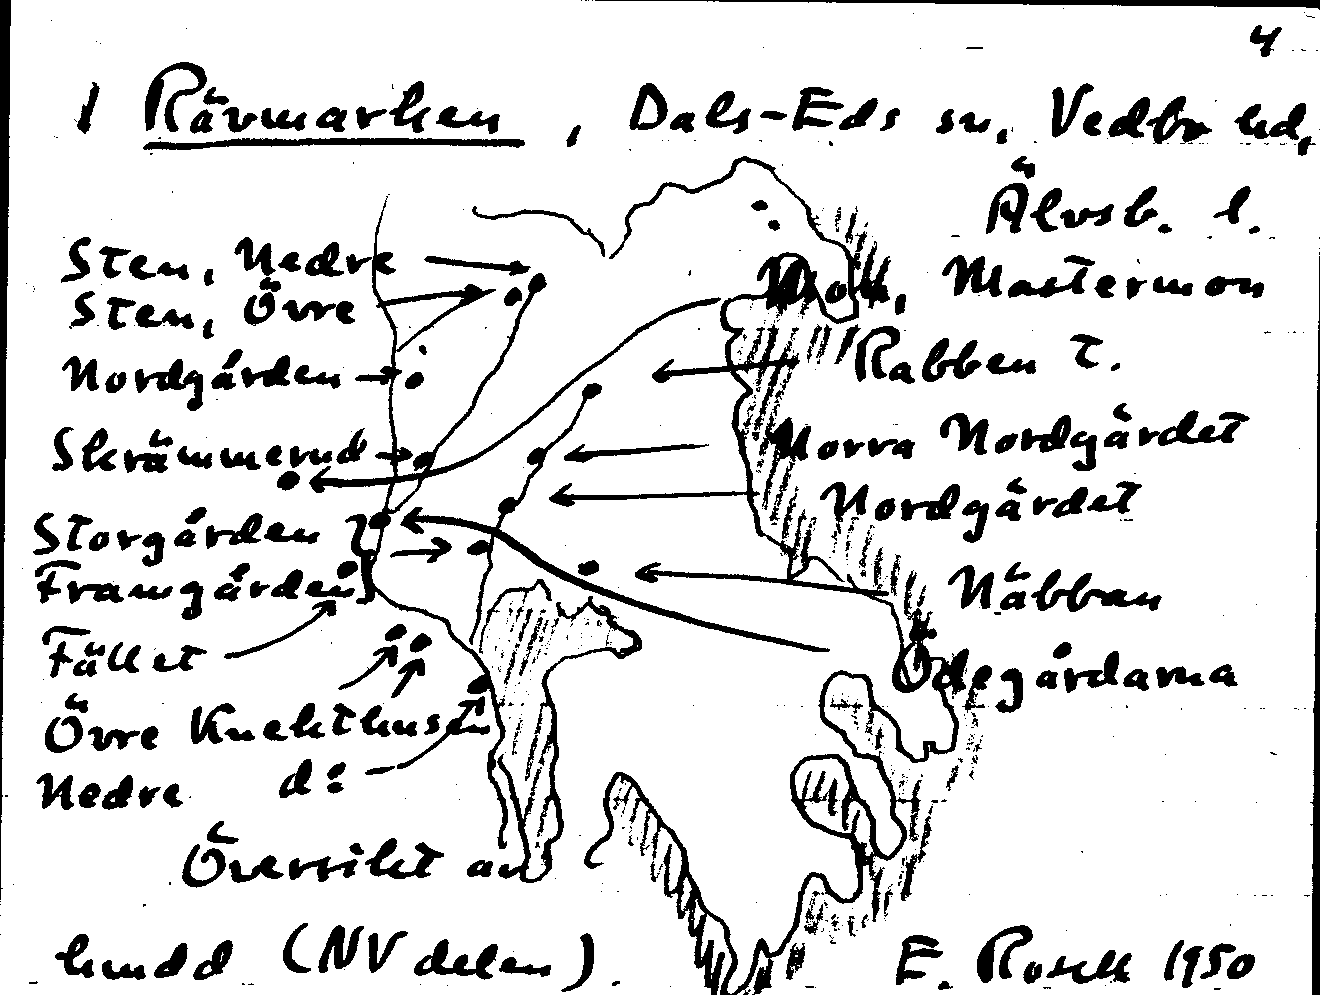 4
1 Rävmarken, Dals-Eds sn, Vedbo hd,
Älvsb. l.
Sten, Nedre
Sten, Övre
Nordgården
Skrämmerud
Storgården
Framgården
Fället
Övre Knekthusen
Nedre d:o
Mon, Mastermon
Rabben t.
Norra Nordgärdet
Nordgärdet
Näbban
Ödegårdarna
Översikt av
hmdd (NV delen).
E. Rosell 1950